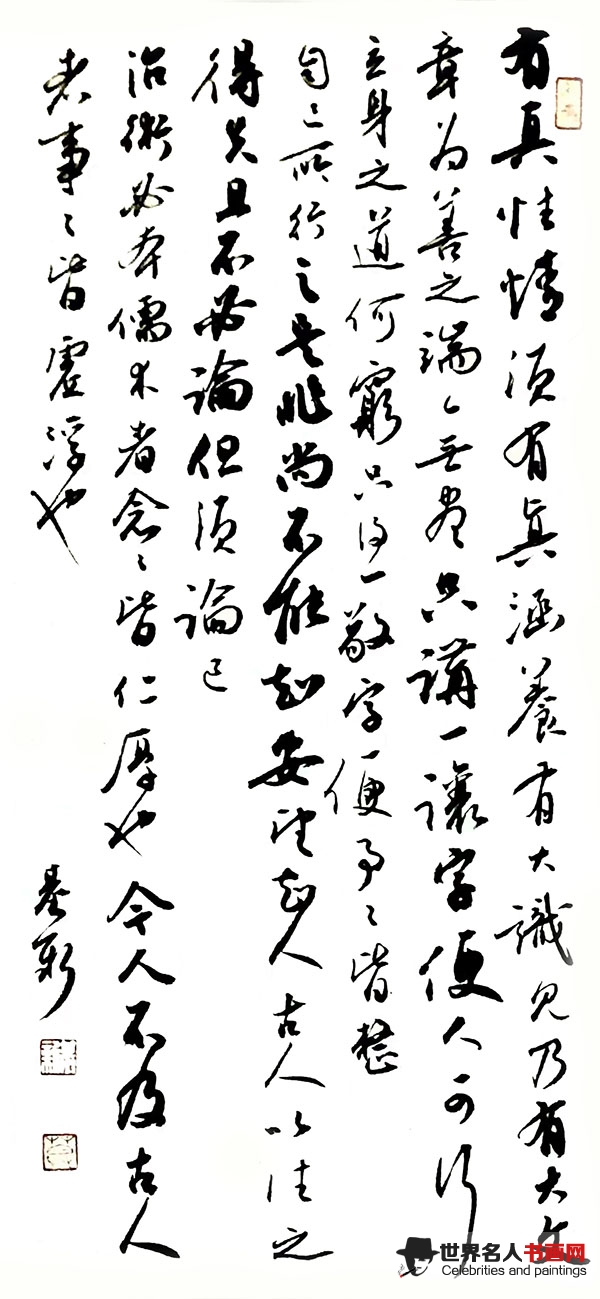 有真性情須有真涵養有大識見乃有大文
章为善之端々無尽只講一讓字便人可行
立身之道何窮只得一敬字便事々皆整
自己所行之是非尚不能知安望知人古人以往之
得失且不必論但須論己
治術必本儒术者念々皆仁厚也今人不及古人
者事々皆虚浮也
世界名人书画网
Celebrities and paintings